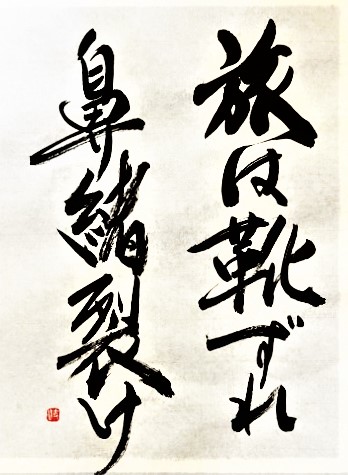 旅は靴ずれ
鼻緒裂け